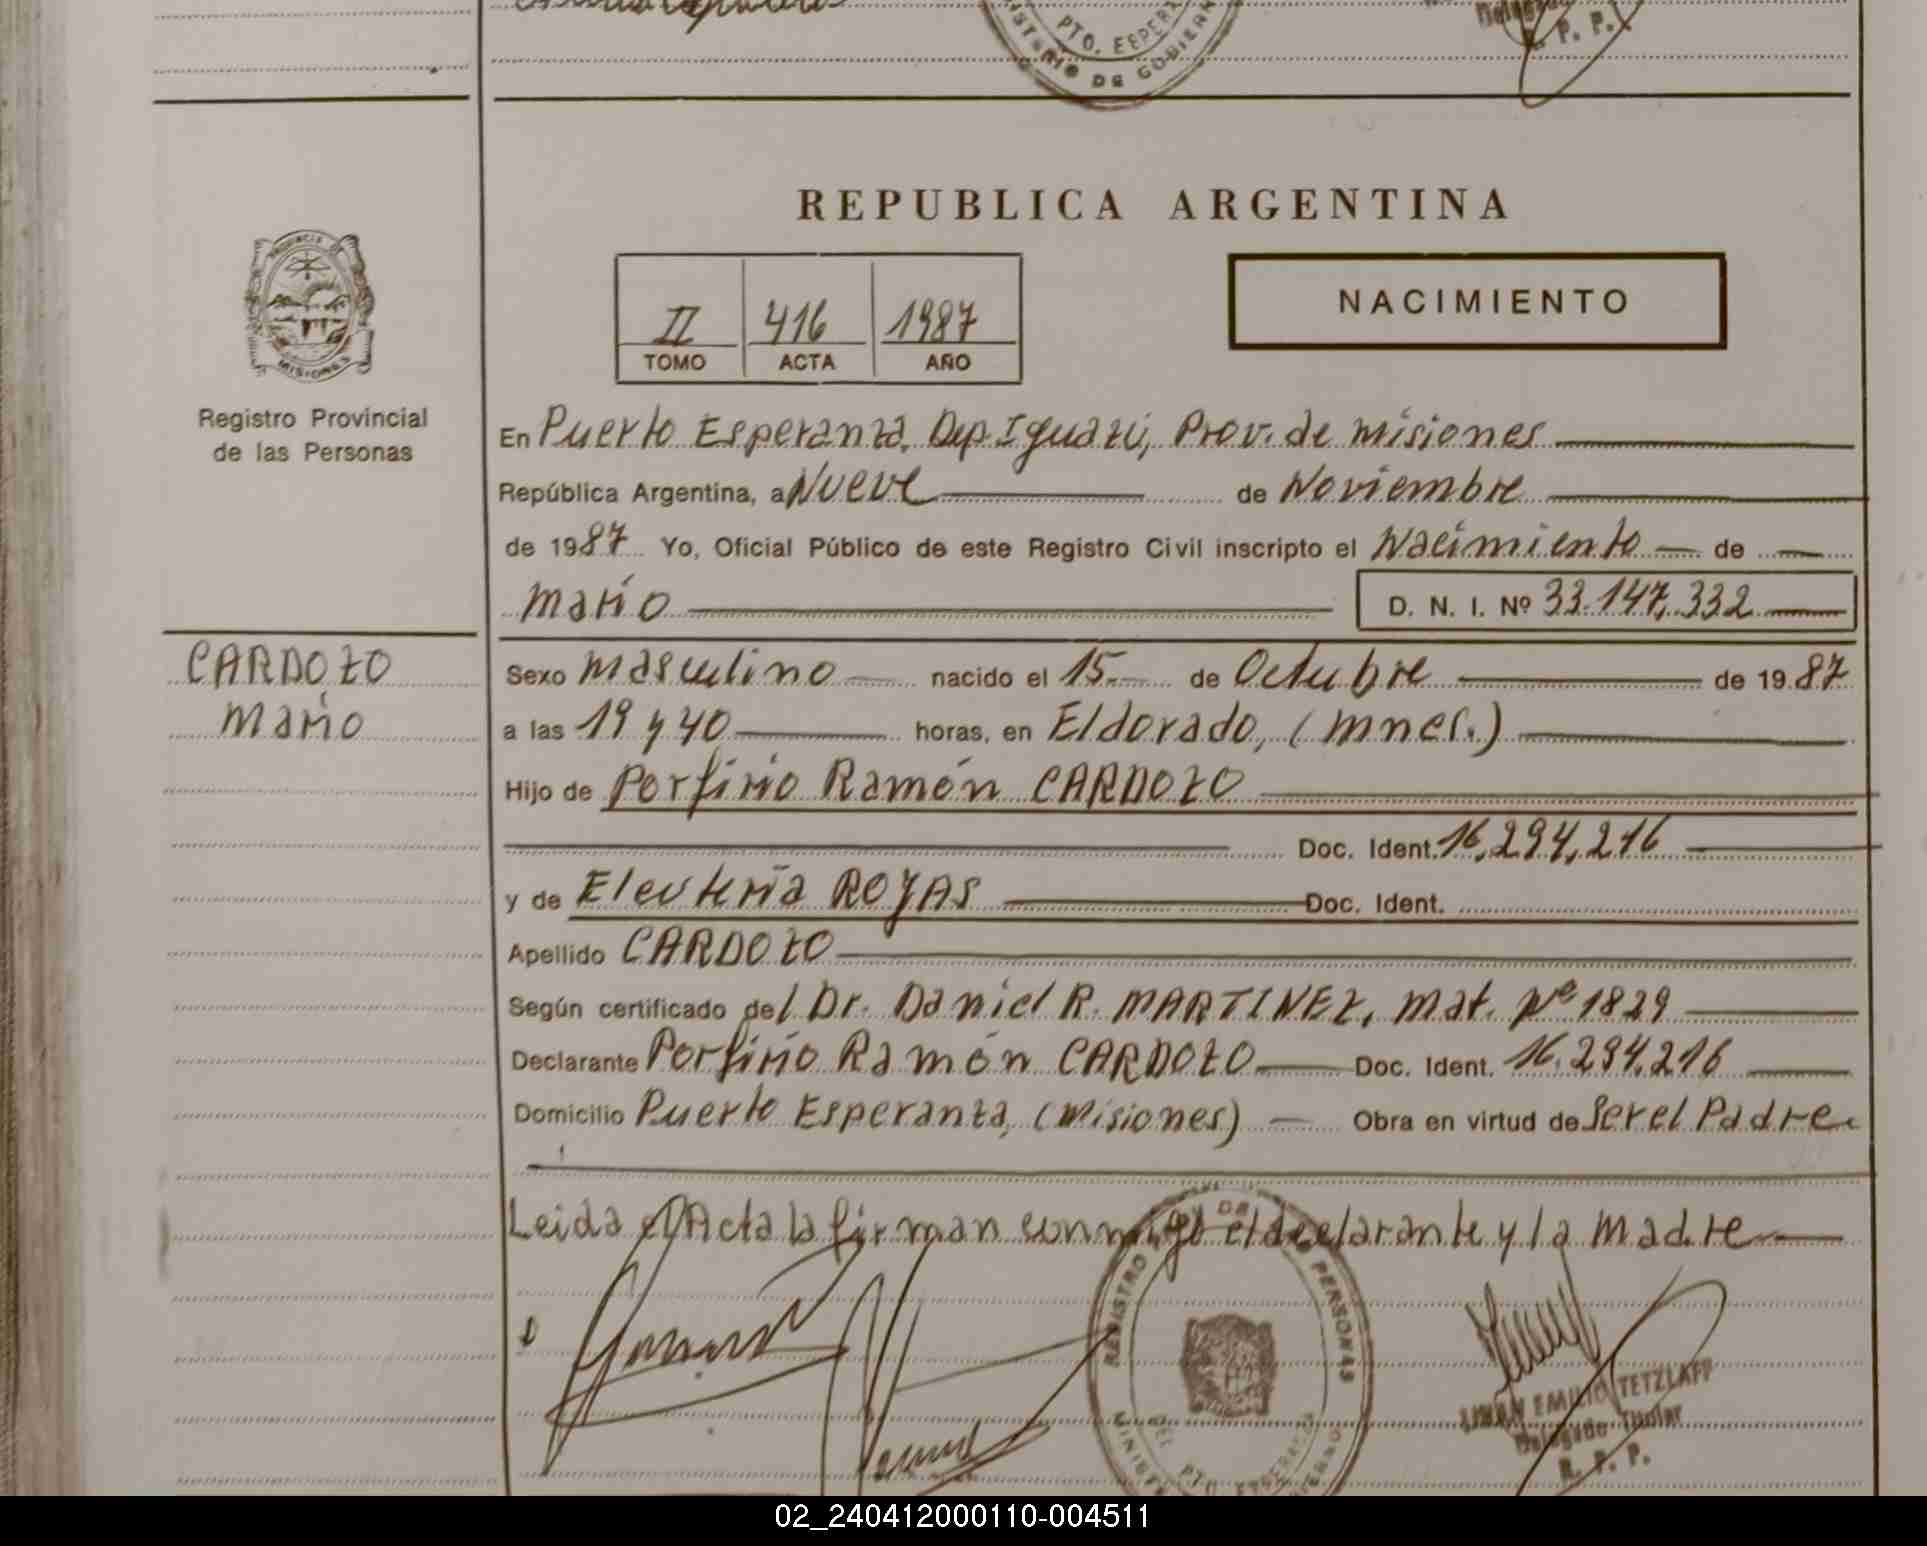 PTO. ESPER
ISTERIO DE GOBIERN
R. P. P.
REPUBLICA ARGENTINA
PROVINCIA DE
MISIONES
NACIMIENTO
II 416 1987
TOMO ACTA AÑO
Registro Provincial
de las Personas
En Puerto Esperanza, Dep. Iguazú, Prov. de Misiones
República Argentina, a Nueve de Noviembre
de 1987 Yo, Oficial Público de este Registro Civil inscripto el Nacimiento de
Mario D. N. I. Nº 33.147.332
CARDOZO
Mario
Sexo Masculino nacido el 15 de Octubre de 1987
a las 19 y 40 horas, en Eldorado, (Mnes.)
Hijo de Porfirio Ramón CARDOZO
Doc. Ident. 16.294.216
y de Eleuteria ROJAS Doc. Ident.
Apellido CARDOZO
Según certificado del Dr. Daniel R. MARTINEZ, Mat. Nº 1829
Declarante Porfirio Ramón CARDOZO Doc. Ident. 16.294.216
Domicilio Puerto Esperanza, (Misiones) Obra en virtud de Ser el Padre
Leida el Acta la firman conmigo el declarante y la Madre
REGISTRO DE PERSONAS
DEL PTO. ESPERANZA
EMILIO TETZLAFF
Delegado Titular
R. P. P.
02_240412000110-004511